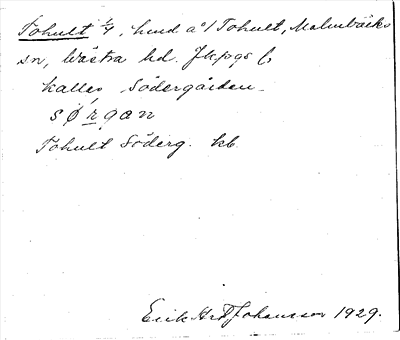 Tohult 1/4, hmd av 1 Tohult, Malmbäcks
sn, Västra hd. Jkpgs l,
kallas Södergården.
sørgan
Tohult Söderg. kb
Erik Johansson 1929.